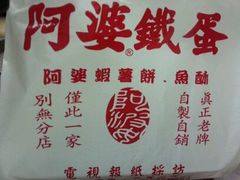 阿婆鐵蛋
®
阿婆蝦薯餅.魚酥
真正老牌
自製自銷
阿婆
僅此一家
別無分店
電視報紙採訪